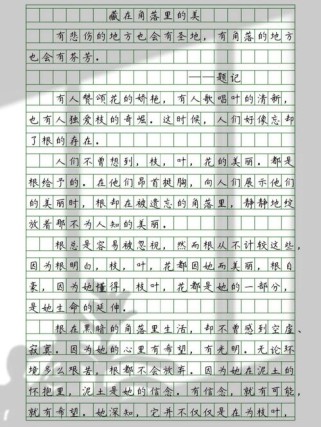 藏在角落里的美
有悲伤的地方也会有圣地，有角落的地方
也会有芬芳。
——题记
有人赞颂花的娇艳，有人歌唱叶的清新，
也有人独爱枝的奇崛。这时候，人们好像忘却
了根的存在。
人们不曾想到，枝，叶，花的美丽。都是
根给予的。在他们昂首挺胸，向人们展示他们
的美丽时，根却在被遗忘的角落里，静静地绽
放着那不为人知的美丽。
根总是容易被忽视，然而根从不计较这些，
因为根明白，枝，叶，花都因她而美丽，根自
豪，因为她懂得，枝叶，花都是她的一部分，
是她生命的延伸。
根在黑暗的角落里生活，却不曾感到空虚、
寂寞。因为她的心里有希望，有光明。无论环
境多么艰苦。根都不会放弃。因为她在泥土的
怀抱里，泥土是她的信念。有信念，就有可能，
就有希望。她深知，它并不仅仅是在为枝叶，